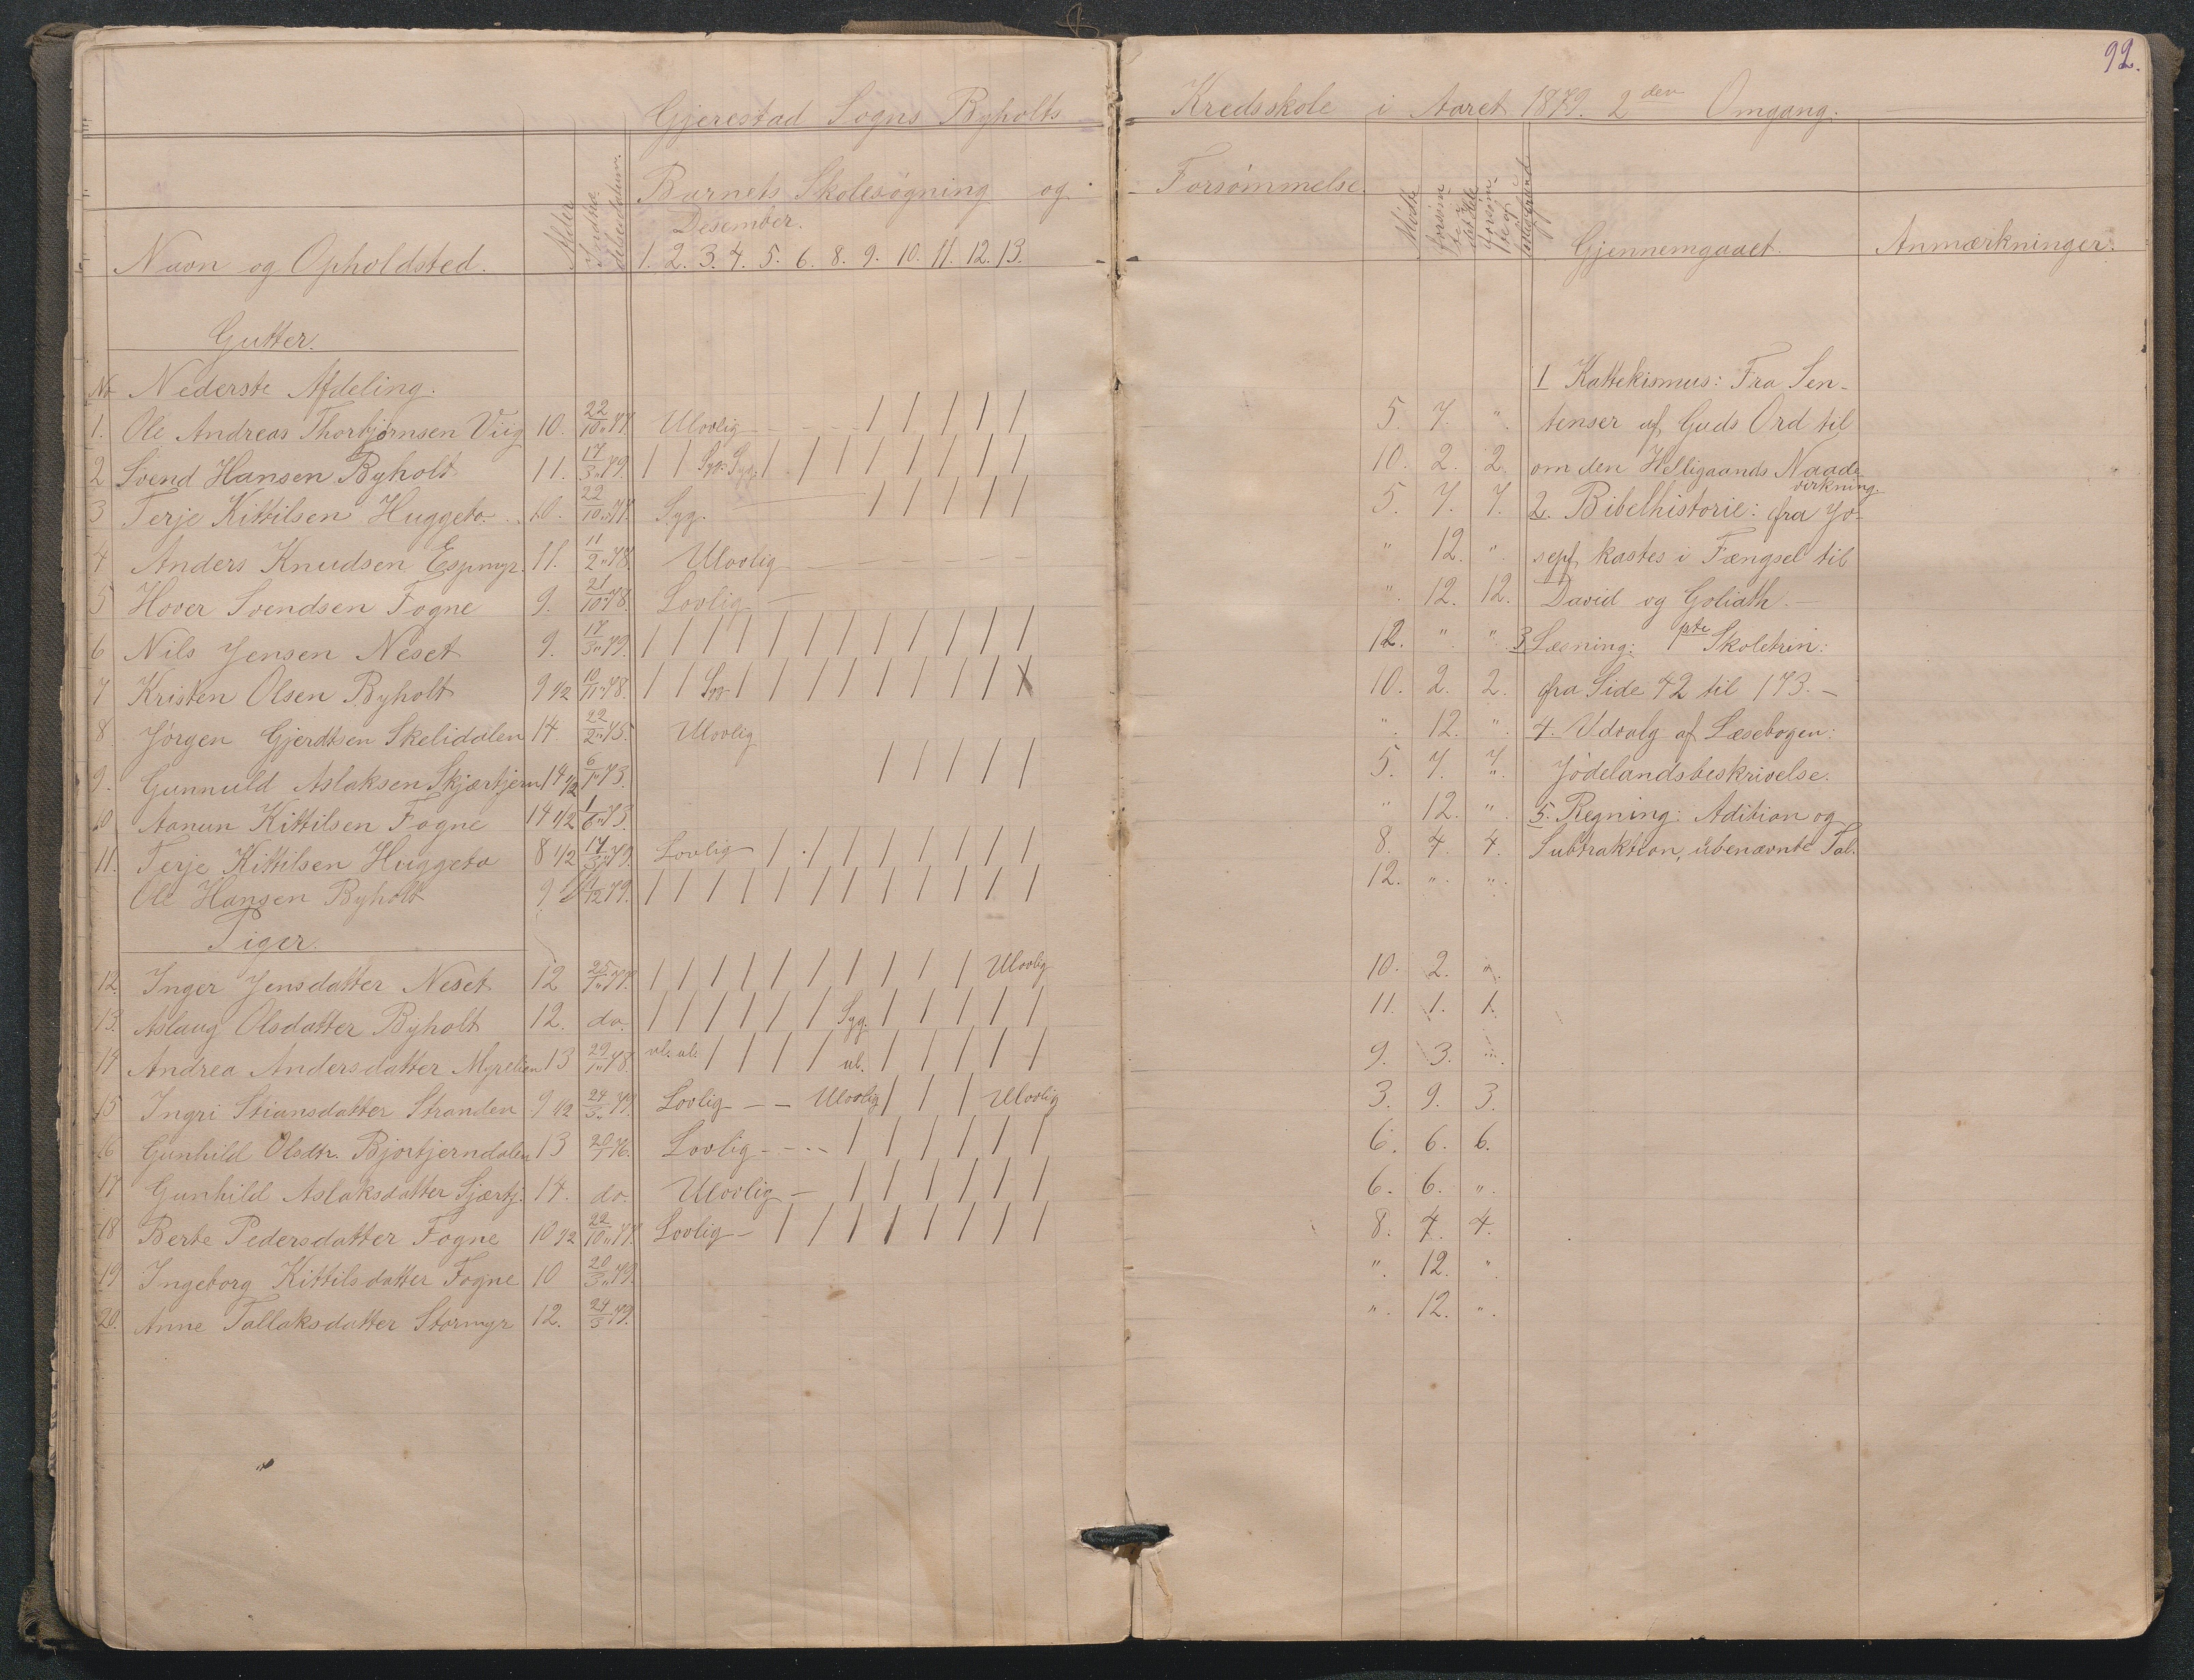 92.
Gjerestad Sogns Byholts Kredsskole i Aaret 1879. 2den Omgang.
Barnets Skolesøgning og Forsømmelse.
Desember.
Navn og Opholdsted. Alder Indskrivelsesdatum. 1. 2. 3. 4. 5. 6. 8. 9. 10. 11. 12. 13. Mødte Gjennemgaaet. Anmærkninger.
Gutter.
Nr Nederste Afdeling. 1 Kattekismus: Fra Sen-
1. Ole Andreas Thorbjørnsen Viig 10. 22/10 77. Ulovlig - - - - / / / / / 5. 7. ". tenser af Guds Ord til
2 Svend Hansen Byholt 11. 17/3 79. / / Syg. Syg. / / / / / / / / 10. 2. 2. om den Helligaands Naade
virkning.
3 Terje Kittilsen Huggeto. 10. 22/10 77. Syg. / / / / / 5. 7. 7. 2. Bibelhistorie: fra Jo-
4 Anders Knudsen Espmyr. 11. 11/2 78. Ulovlig " 12. ". seph kastes i Fængsel til
5 Hover Svendsen Fogne 9. 21/10 78. Lovlig - ". 12. 12. David og Goliath. -
6 Nils Jensen Neset 9. 17/3 79. / / / / / / / / / / / / 12. " " 3 Læsning: 1ste Skoletrin:
7 Kristen Olsen Byholt 9 1/2 10/11 78. / / Syg / / / / / / / / X 10. 2. 2. fra Side 42 til 173. -
8 Jørgen Gjerdtsen Skelidalen 14. 22/2 75. Ulovlig ". 12. ". 4. Udvalg af Læsebogen:
9. Gunnuld Aslaksen Skjærtjern 14 1/2 6/1 73. / / / / / 5. 7. 7. Jødelandsbeskrivelse.
10 Aanun Kittilsen Fogne 14 1/2 1/6 73. " 12. ". 5. Regning: Adition og
11. Terje Kittilsen Huggeto 8 1/2 17/3 79. Lovlig / . / / / / / / / 8. 4. 4. Subtraktion, ubenævnte Tal.
Ole Hansen Byholt 9 /12 79. / / / / / / / / / / / / 12. ". ".
Piger.
12. Inger Jensdatter Neset 12 25/1 77. / / / / / / / / / / Ulovlig 10. 2. ".
13. Aslaug Olsdatter Byholt 12. do. / / / / / / Syg. / / / / / 11. 1. 1.
14 Andrea Andersdatter Myrelien 13 29/1 78. ul. ul. / / / / ul. / / / / / 9. 3. ".
15 Ingri Stiansdatter Stranden 9 1/2 24/3 79. Lovlig - - Ulovlig / / / Ulovlig 3. 9. 3.
16 Gunhild Olsdtr. Bjortjerndalen 13 20/1 76. Lovlig - - - - / / / / / / 6. 6. 6.
17 Gunhild Aslaksdatter Sjærtj. 14. do. Ulovlig - / / / / / / 6. 6. ".
18 Berte Pedersdatter Fogne 10 1/2 22/10 77. Lovlig - / / / / / / / / 8. 4. 4.
19 Ingeborg Kittilsdatter Fogne 10 20/3 79. ". 12. ".
20. Anne Tallaksdatter Stormyr 12. 24/3 79. ". 12. ".